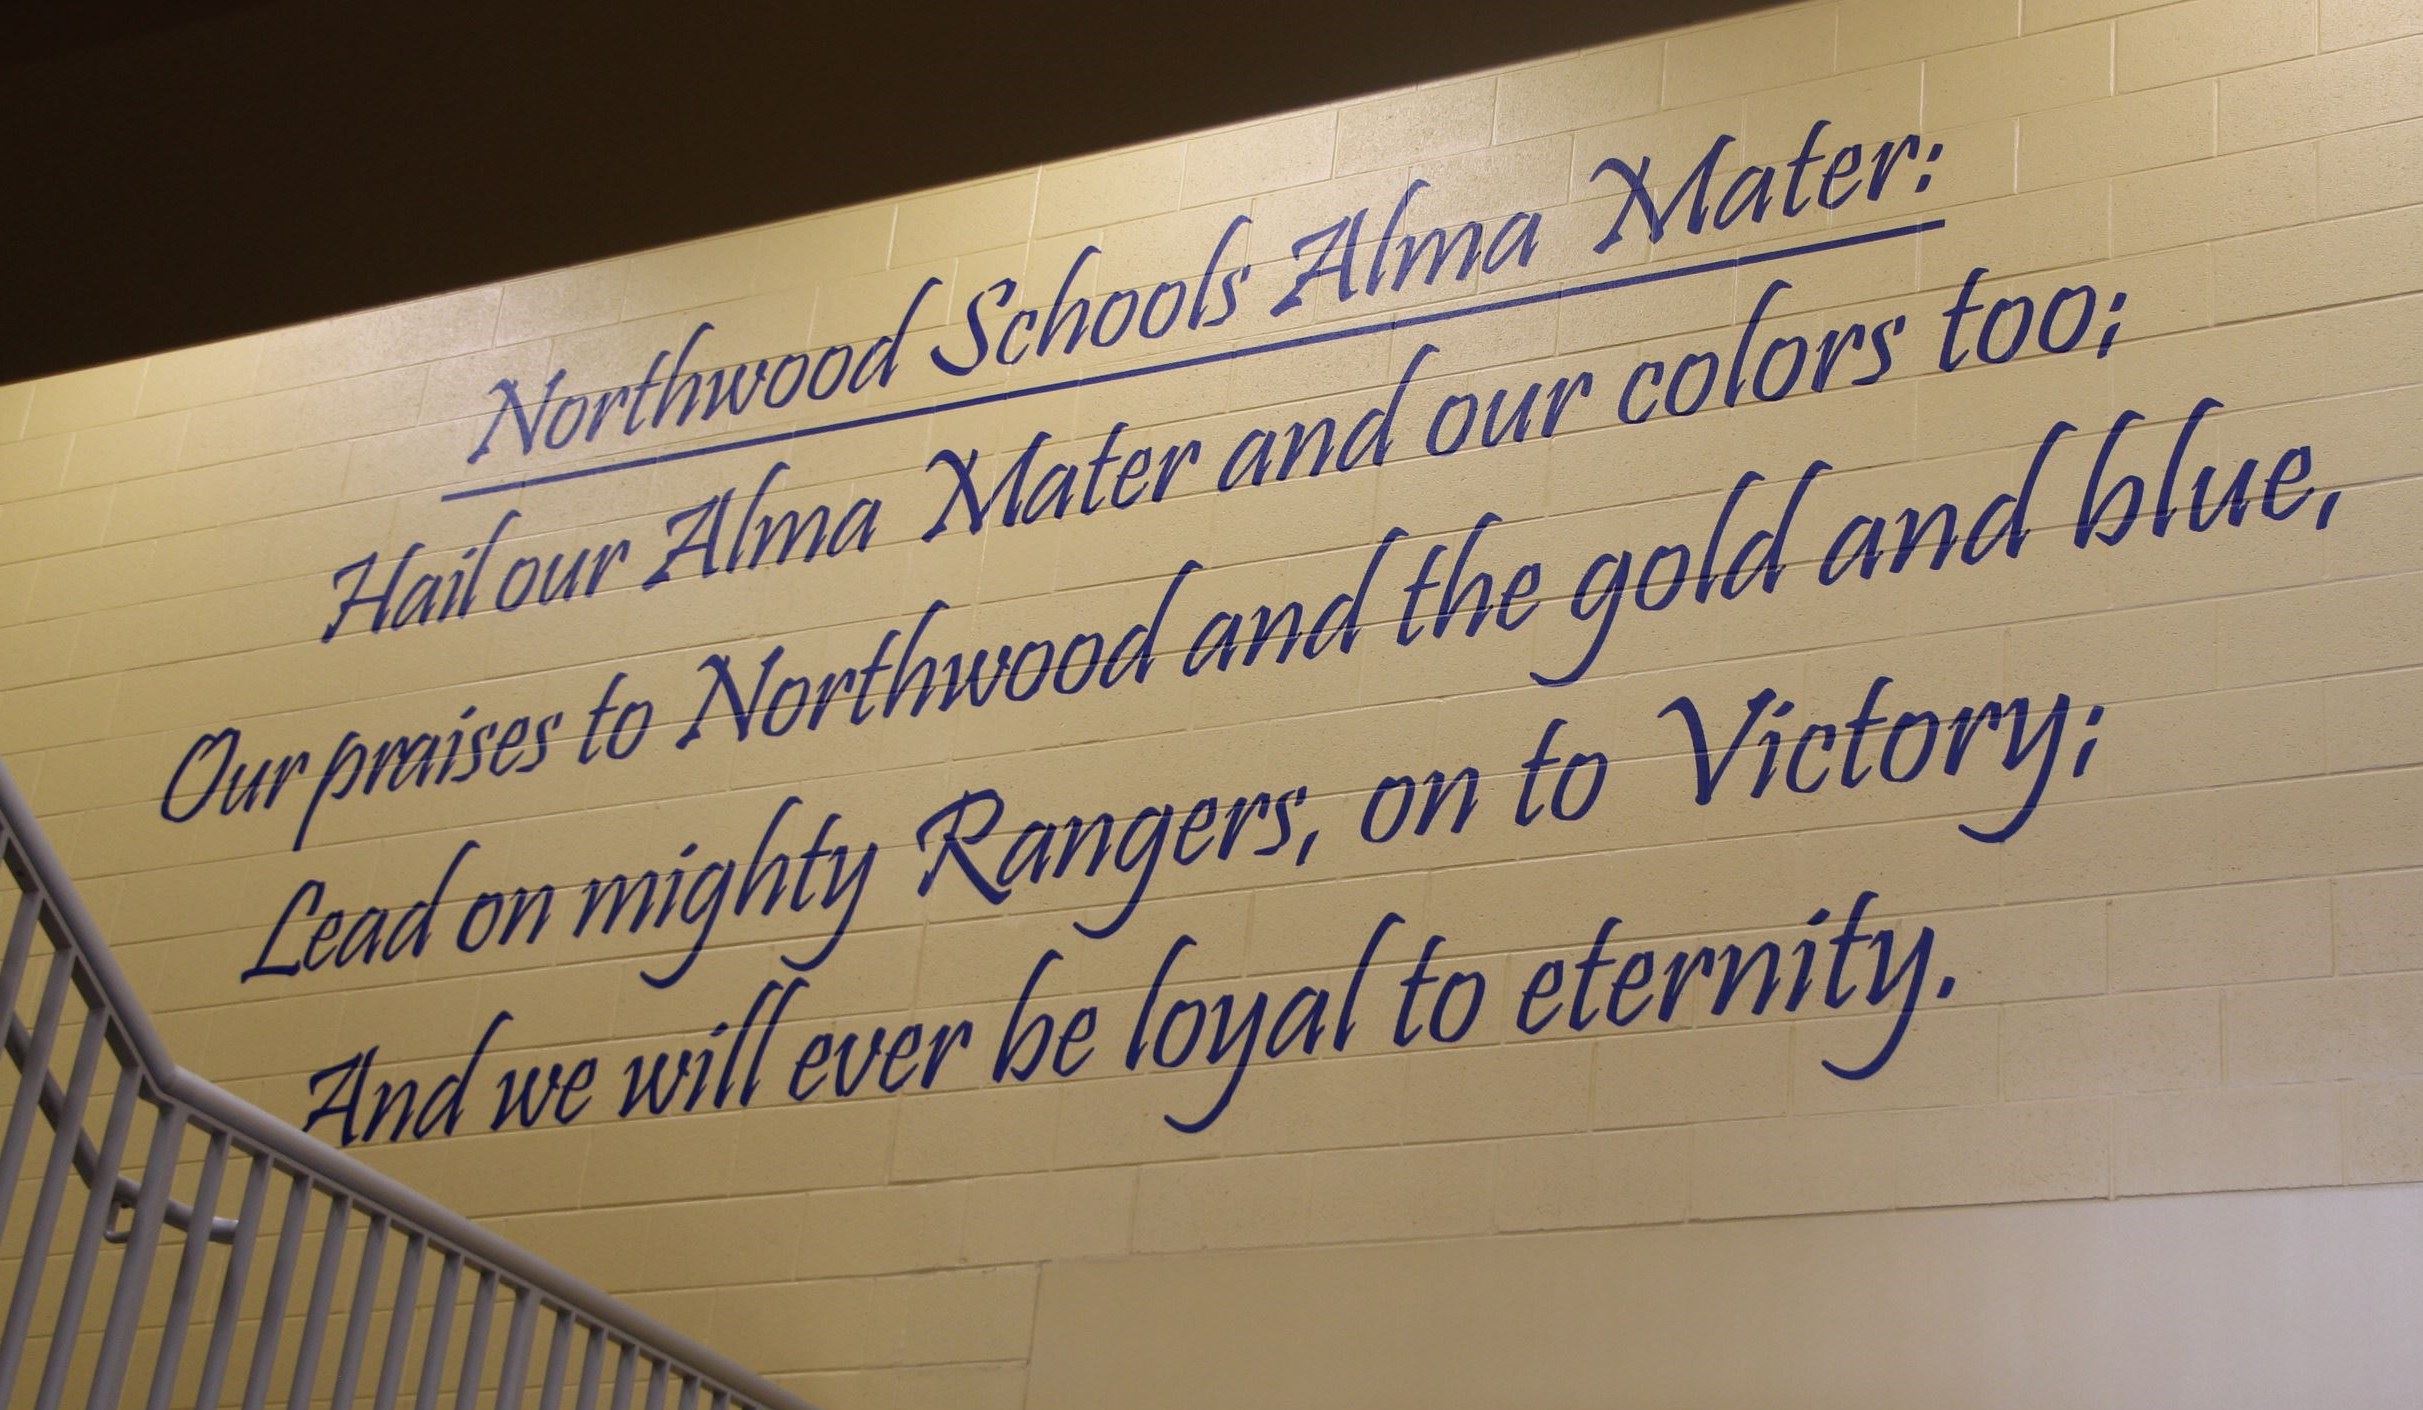 Northwood Schools Alma Mater:
Hail our Alma Mater and our colors too;
Our praises to Northwood and the gold and blue,
Lead on mighty Rangers, on to Victory;
And we will ever be loyal to eternity.